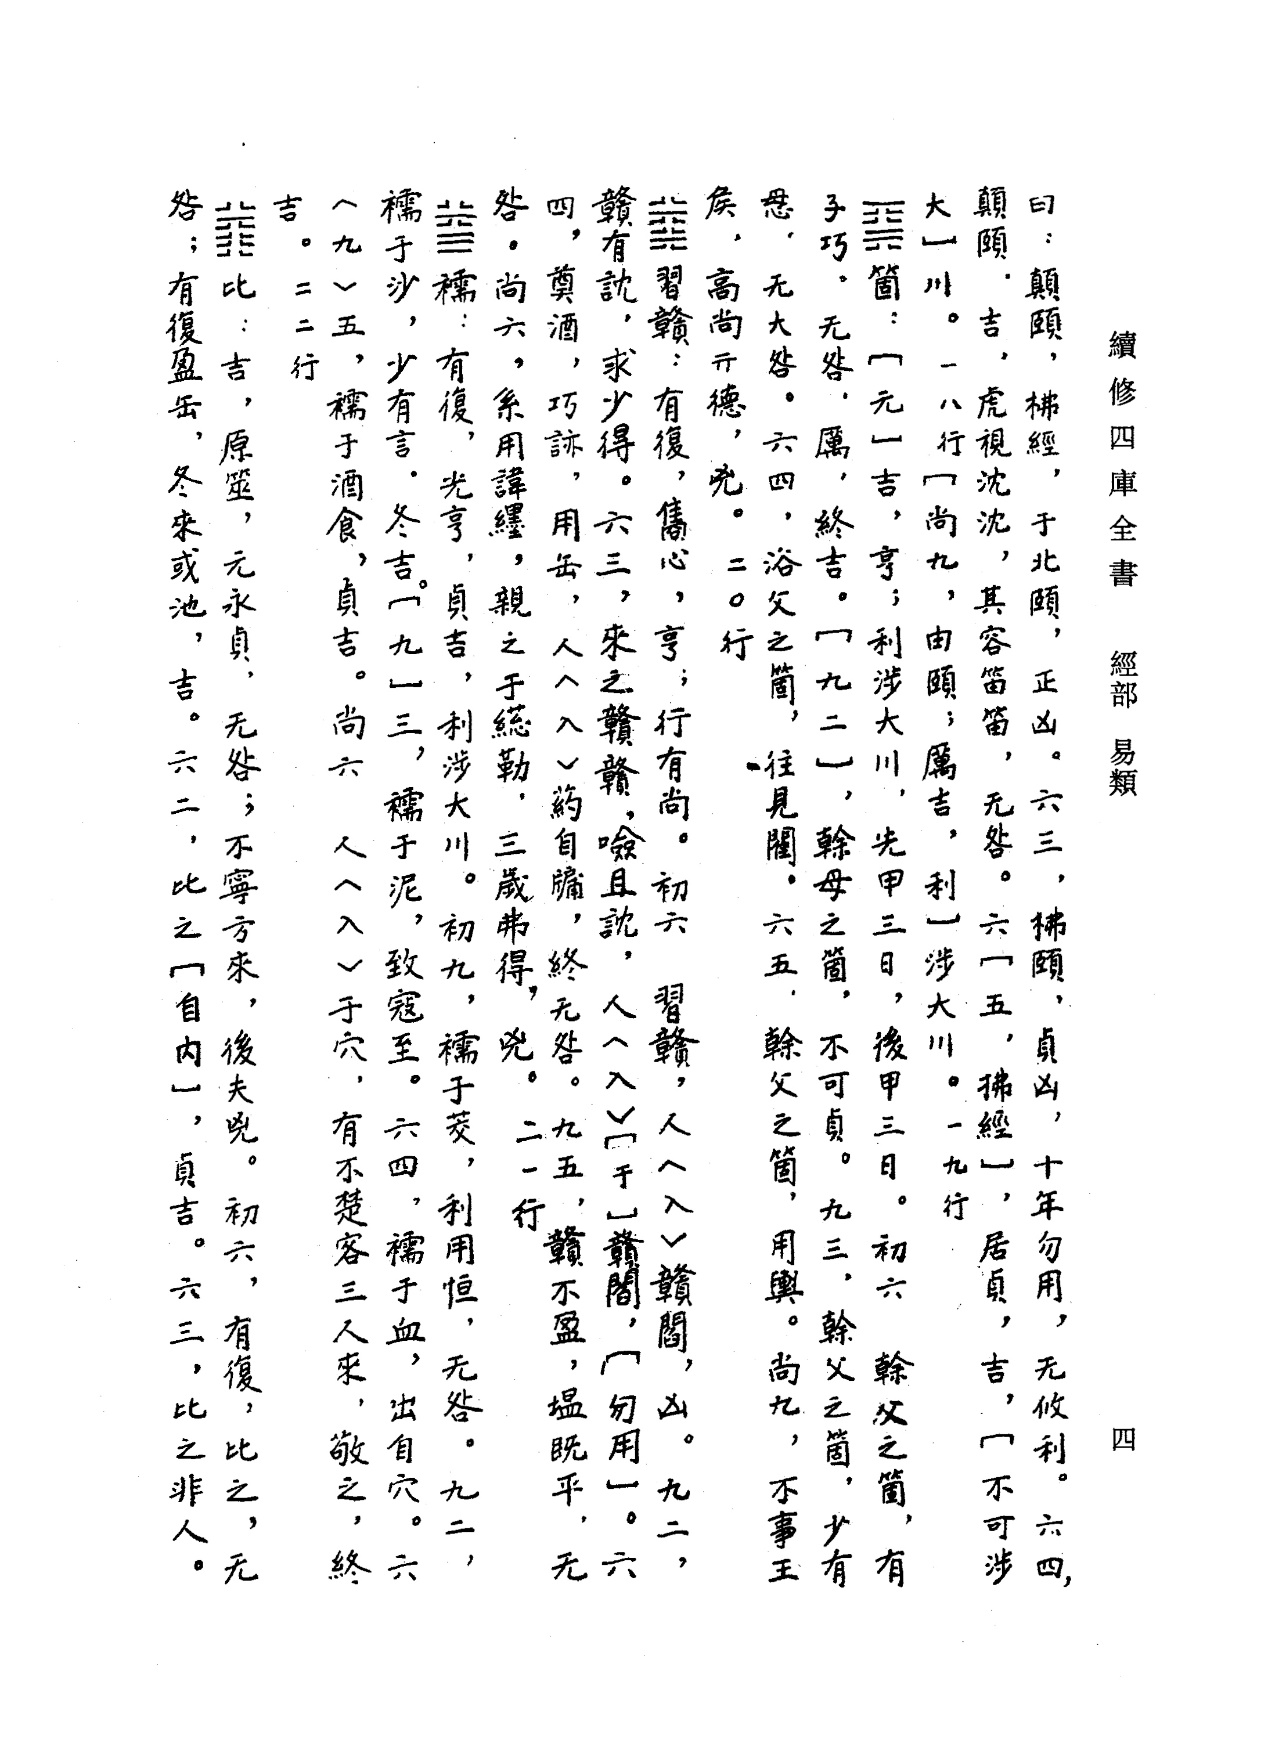 續修四庫全書 經部 易類 四
曰：顛頤，柫經，于北頤，正凶。六三，柫頤，貞凶，十年勿用，无攸利。六四，
顛頤，吉，虎視沈沈，其容笛笛，无咎。六［五，拂經］，居貞，吉，［不可涉
大］川。一八行［尚九，由頤；厲吉，利］涉大川。一九行
箇：［元］吉，亨；利涉大川，先甲三日，後甲三日。初六 榦父之箇，有
子巧，无咎，厲，終吉。［九二］，榦母之箇，不可貞。九三，榦父之箇，少有
㤆，无大咎。六四，浴父之箇，往見閵。六五，榦父之箇，用輿。尚九，不事王
矦，高尚亓德，兇。二〇行
習贛：有復，巂心，亨；行有尚。初六 習贛，人〈入〉贛閻，凶。九二，
贛有訦，求少得。六三，來之贛贛，噞且訦，人〈入〉［于］贛閻，［勿用］。六
四，奠酒，巧詠，用缶，人〈入〉葯自牖，終无咎。九五，贛不盈，塭既平，无
咎。尚六，系用諱纆，親之于繱勒，三歲弗得，兇。二一行
襦：有復，光亨，貞吉，利涉大川。初九，襦于茭，利用恒，无咎。九二，
襦于沙，少有言，冬吉。［九］三，襦于泥，致寇至。六四，襦于血，出自穴。六
〈九〉五，襦于酒食，貞吉。尚六 人〈入〉于穴，有不楚客三人來，敬之，終
吉。二二行
比：吉，原筮，元永貞，无咎；不寧方來，後夫兇。初六，有復，比之，无
咎；有復盈缶，冬來或池，吉。六二，比之［自内］，貞吉。六三，比之非人。